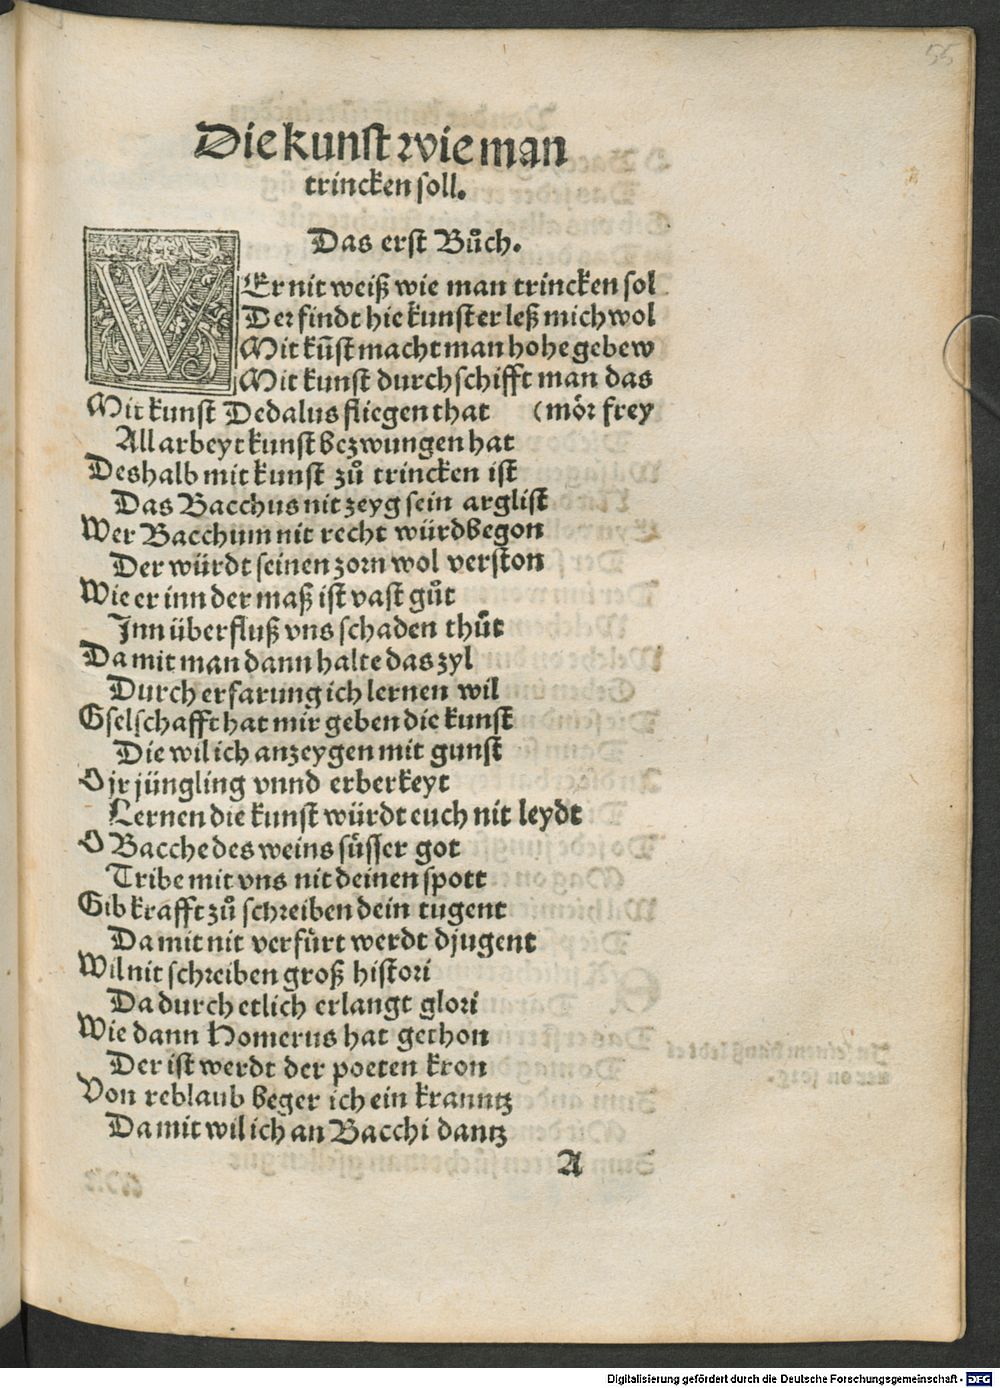 55
Die kunst wie man
trincken soll.
Das erst Bůch.
WEr nit weiß wie man trincken sol
Der findt hie kunst er leß mich wol
Mit kūst macht man hohe gebew
Mit kunst durchschifft man das
Mit kunst Dedalus fliegen that (mör frey
All arbeyt kunst bezwungen hat
Deshalb mit kunst zů trincken ist
Das Bacchus nit zeyg sein arglist
Wer Bacchum nit recht würdt begon
Der würdt seinen zorn wol verston
Wie er inn der maß ist vast gůt
Jnn überfluß vns schaden thůt
Damit man dann halte das zyl
Durch erfarung ich lernen wil
Gselschafft hat mir geben die kunst
Die wil ich anzeygen mit gunst
O jr jüngling vnnd erberkeyt
Lernen die kunst würdt euch nit leydt
O Bacche des weins süsser got
Tribe mit vns nit deinen spott
Gib krafft zů schreiben dein tugent
Damit nit verfürt werdt djugent
Wil nit schreiben groß histori
Dadurch etlich erlangt glori
Wie dann Homerus hat gethon
Der ist werdt der poeten kron
Von reblaub beger ich ein kranntz
Damit wil ich an Bacchi dantz
A
Digitalisierung gefördert durch die Deutsche Forschungsgemeinschaft - DFG